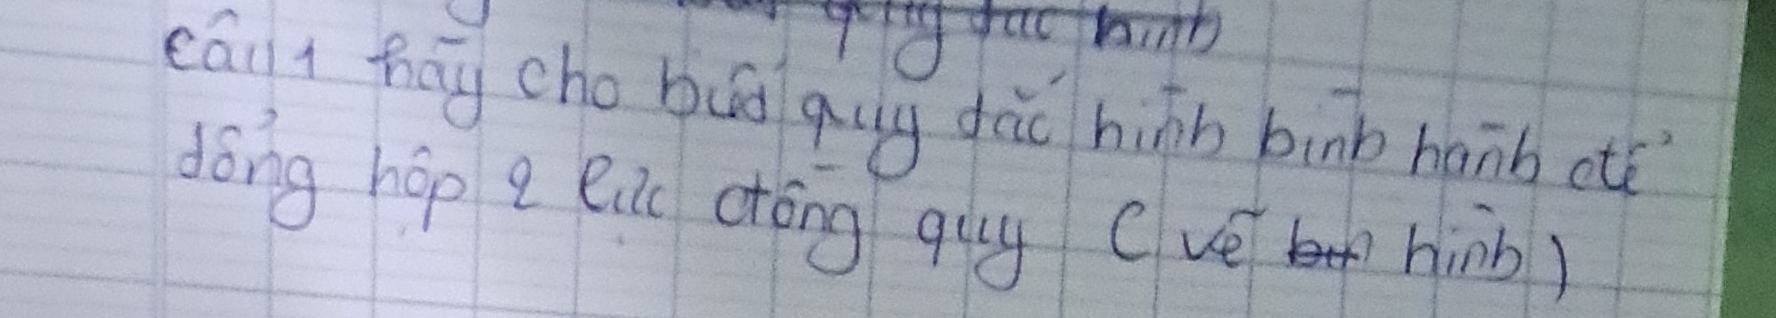 quy tắc hình
câu 1 hãy cho biết quy tắc hình bình hành để
tổng hợp 2 lực đồng quy ( vẽ hình )